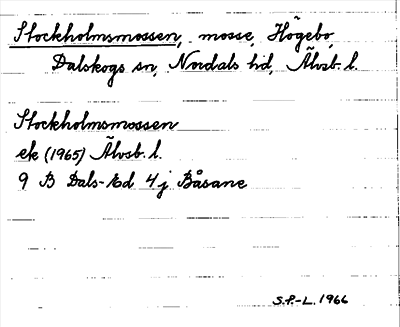 Stockholmsmossen, mosse, Högebo,
Dalskogs sn, Nordals hd, Älvsb. l.
Stockholmsmossen
ek (1965) Älvsb. l.
9 B Dals-Ed 4 j Båsane
S.P.-L. 1966